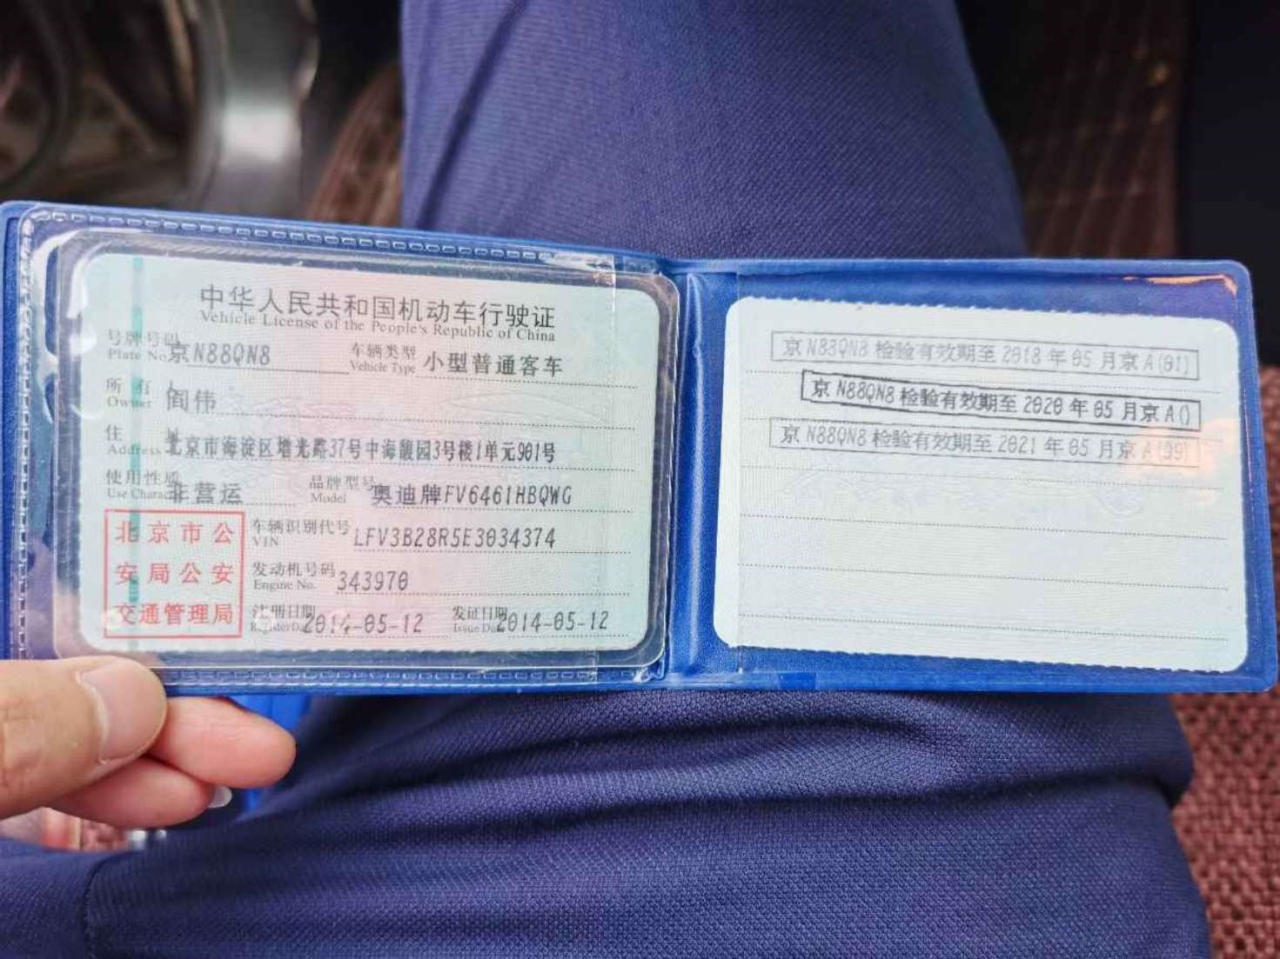 中华人民共和国机动车行驶证
Vehicle License of the People's Republic of China
号牌号码 京N88QN8 车辆类型 小型普通客车
Plate No. Vehicle Type
所有人 阎伟
Owner
住址 北京市海淀区增光路37号中海馥园3号楼1单元901号
Address
使用性质 非营运 品牌型号 奥迪牌FV6461HBQWG
Use Character Model
车辆识别代号 LFV3B28R5E3034374
VIN
发动机号码 343970
Engine No.
注册日期 2014-05-12 发证日期 2014-05-12
Register Date Issue Date
北京市公
安局公安
交通管理局
京N88QN8检验有效期至2018年05月京A(01)
京N88QN8检验有效期至2020年05月京A()
京N88QN8检验有效期至2021年05月京A(99)